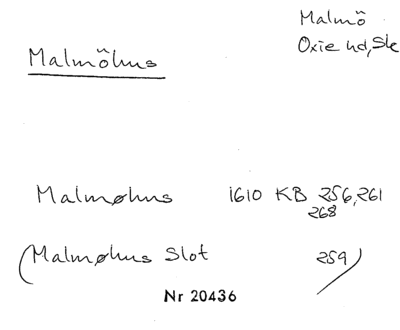 Malmö
Oxie hd, Sk
Malmöhus
Malmøhus 1610 KB 256, 261
268
(Malmøhus Slot 259)
Nr 20436